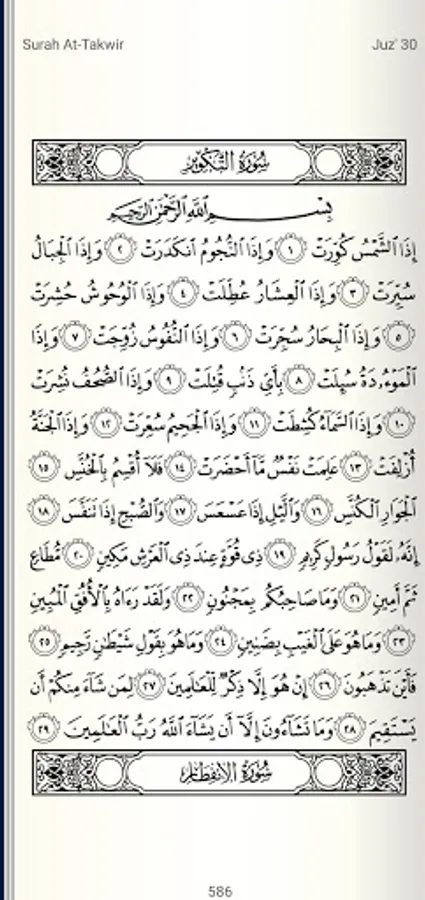 Surah At-Takwir
Juz' 30
سُورَةُ التَّكْوِيرِ
بِسْمِ ٱللَّهِ ٱلرَّحْمَٰنِ ٱلرَّحِيمِ
إِذَا ٱلشَّمْسُ كُوِّرَتْ ١ وَإِذَا ٱلنُّجُومُ ٱنكَدَرَتْ ٢ وَإِذَا ٱلْجِبَالُ
سُيِّرَتْ ٣ وَإِذَا ٱلْعِشَارُ عُطِّلَتْ ٤ وَإِذَا ٱلْوُحُوشُ حُشِرَتْ
٥ وَإِذَا ٱلْبِحَارُ سُجِّرَتْ ٦ وَإِذَا ٱلنُّفُوسُ زُوِّجَتْ ٧ وَإِذَا
ٱلْمَوْءُۥدَةُ سُئِلَتْ ٨ بِأَيِّ ذَنۢبٍ قُتِلَتْ ٩ وَإِذَا ٱلصُّحُفُ نُشِرَتْ
١٠ وَإِذَا ٱلسَّمَآءُ كُشِطَتْ ١١ وَإِذَا ٱلْجَحِيمُ سُعِّرَتْ ١٢ وَإِذَا ٱلْجَنَّةُ
أُزْلِفَتْ ١٣ عَلِمَتْ نَفْسٌ مَّآ أَحْضَرَتْ ١٤ فَلَآ أُقْسِمُ بِٱلْخُنَّسِ ١٥
ٱلْجَوَارِ ٱلْكُنَّسِ ١٦ وَٱلَّيْلِ إِذَا عَسْعَسَ ١٧ وَٱلصُّبْحِ إِذَا تَنَفَّسَ ١٨
إِنَّهُۥ لَقَوْلُ رَسُولٍ كَرِيمٍ ١٩ ذِى قُوَّةٍ عِندَ ذِى ٱلْعَرْشِ مَكِينٍ ٢٠ مُّطَاعٍ
ثَمَّ أَمِينٍ ٢١ وَمَا صَاحِبُكُم بِمَجْنُونٍ ٢٢ وَلَقَدْ رَءَاهُ بِٱلْأُفُقِ ٱلْمُبِينِ
٢٣ وَمَا هُوَ عَلَى ٱلْغَيْبِ بِضَنِينٍ ٢٤ وَمَا هُوَ بِقَوْلِ شَيْطَٰنٍ رَّجِيمٍ ٢٥
فَأَيْنَ تَذْهَبُونَ ٢٦ إِنْ هُوَ إِلَّا ذِكْرٌ لِّلْعَٰلَمِينَ ٢٧ لِمَن شَآءَ مِنكُمْ أَن
يَسْتَقِيمَ ٢٨ وَمَا تَشَآءُونَ إِلَّآ أَن يَشَآءَ ٱللَّهُ رَبُّ ٱلْعَٰلَمِينَ ٢٩
سُورَةُ الانفِطَارِ
586